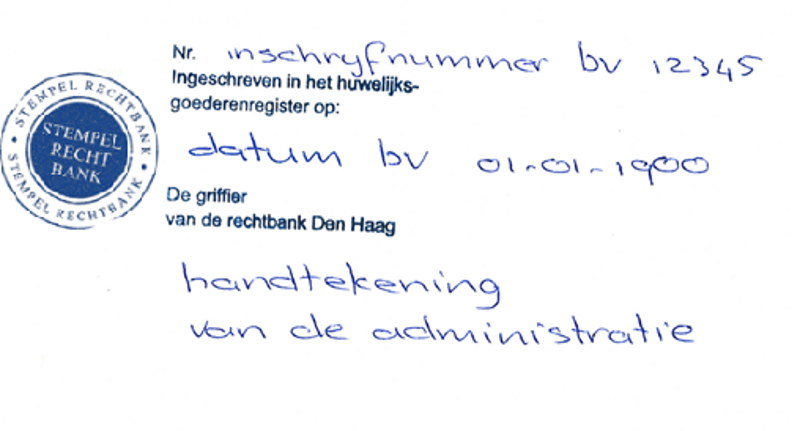 Nr. inschryfnummer bv 12345
Ingeschreven in het huwelijks-
goederenregister op:
STEMPEL RECHTBANK
STEMPEL
RECHT
BANK
STEMPEL RECHTBANK
datum bv 01-01-1900
De griffier
van de rechtbank Den Haag
handtekening
van de administratie